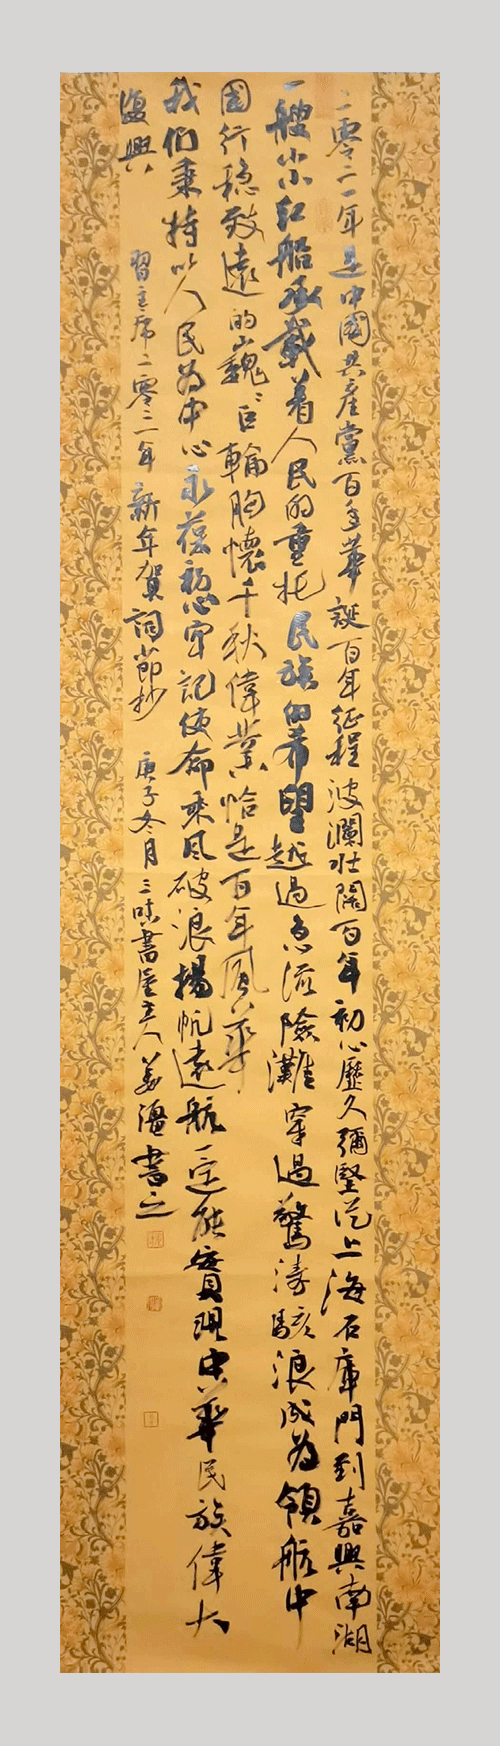 二零二一年是中國共產黨百年華誕百年征程波瀾壯闊百年初心歷久彌堅從上海石庫門到嘉興南湖
一艘小小紅船承載着人民的重托民族的希望越過急流險灘穿過驚濤駭浪成為領航中
國行穩致遠的巍巍巨輪胸懷千秋偉業恰是百年風華
我們秉持以人民為中心永葆初心牢記使命乘風破浪揚帆遠航一定能實現中華民族偉大
復興 習主席二零二一年新年賀詞節抄 庚子冬月三味書屋主人姜溫書之